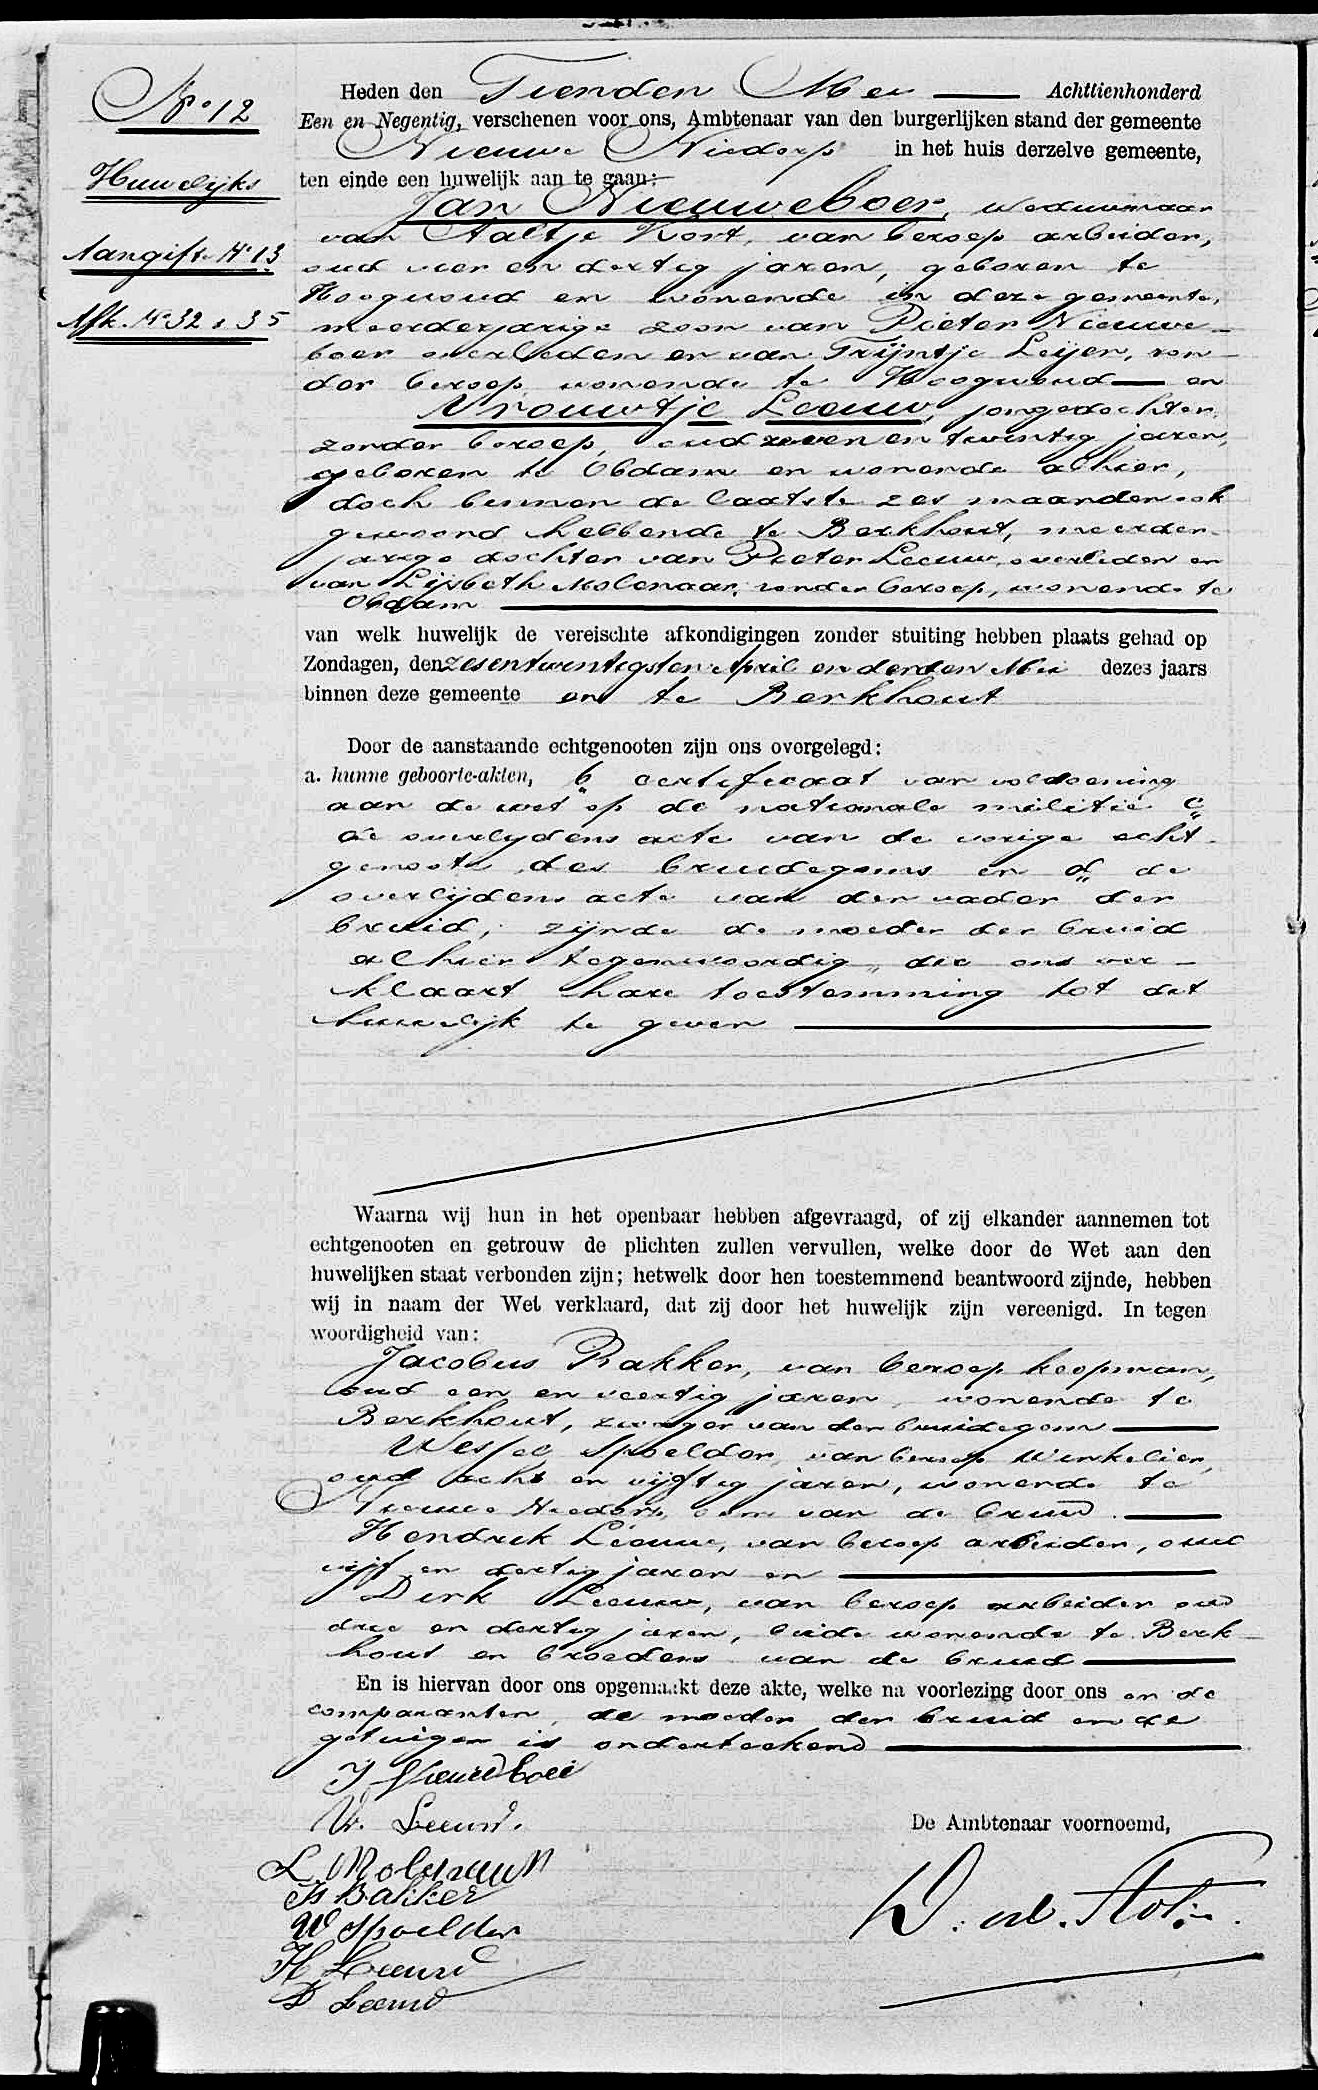 No. 12
Huwelijks
Aangifte No 13
Afk. No 32 & 35
Heden den Tienden Mei Achttienhonderd
Een en Negentig, verschenen voor ons, Ambtenaar van den burgerlijken stand der gemeente
Nieuwe Niedorp in het huis derzelve gemeente,
ten einde een huwelijk aan te gaan:
Jan Nieuweboer, weduwnaar
van Aaltje Kort, van beroep arbeider,
oud vier en dertig jaren, geboren te
Hoogwoud en wonende in deze gemeente,
meerderjarige zoon van Pieter Nieuwe-
boer overleden en van Trijntje Leijen, zon-
der beroep wonende te Hoogwoud en
Vrouwtje Leeuw, jongedochter
zonder beroep, oud zeven en twintig jaren,
geboren te Obdam en wonende alhier,
doch binnen de laatste zes maanden ook
gewoond hebbende te Berkhout, meerder-
jarige dochter van Pieter Leeuw, overleden en
van Lijsbeth Molenaar, zonder beroep, wonende te
Obdam
van welk huwelijk de vereischte afkondigingen zonder stuiting hebben plaats gehad op
Zondagen, den zesentwintigsten April en derden Mei dezes jaars
binnen deze gemeente en te Berkhout
Door de aanstaande echtgenooten zijn ons overgelegd:
a. hunne geboorte-akten, b certificaat van voldoening
aan de wet op de nationale militie c
de overlijdens acte van de vorige echt-
genoote des bruidegoms en d de
overlijdens acte van den vader der
bruid, zijnde de moeder der bruid
alhier tegenwoordig, die ons ver-
klaart hare toestemming tot dit
huwelijk te geven
Waarna wij hun in het openbaar hebben afgevraagd, of zij elkander aannemen tot
echtgenooten en getrouw de plichten zullen vervullen, welke door de Wet aan den
huwelijken staat verbonden zijn; hetwelk door hen toestemmend beantwoord zijnde, hebben
wij in naam der Wet verklaard, dat zij door het huwelijk zijn vereenigd. In tegen
woordigheid van:
Jacobus Bakker, van beroep koopman,
oud een en veertig jaren, wonende te
Berkhout, zwager van den bruidegom
Spoelder, van beroep Winkelier,
oud acht en vijftig jaren, wonende te
Nieuwe Niedorp, oom van de bruid.
Hendrik Leeuw, van beroep arbeider, oud
vijf en dertig jaren en
Dirk Leeuw, van beroep arbeider oud
drie en dertig jaren, beide wonende te Berk-
hout en broeders van de bruid
En is hiervan door ons opgemaakt deze akte, welke na voorlezing door ons en de
comparanten, de moeder der bruid en de
getuigen is onderteekend
J Nieuweboer
Vr. Leeuw.
L. Molenaar
Js Bakker
W Spoelder
H. Leeuw
D Leeuw
De Ambtenaar voornoemd,